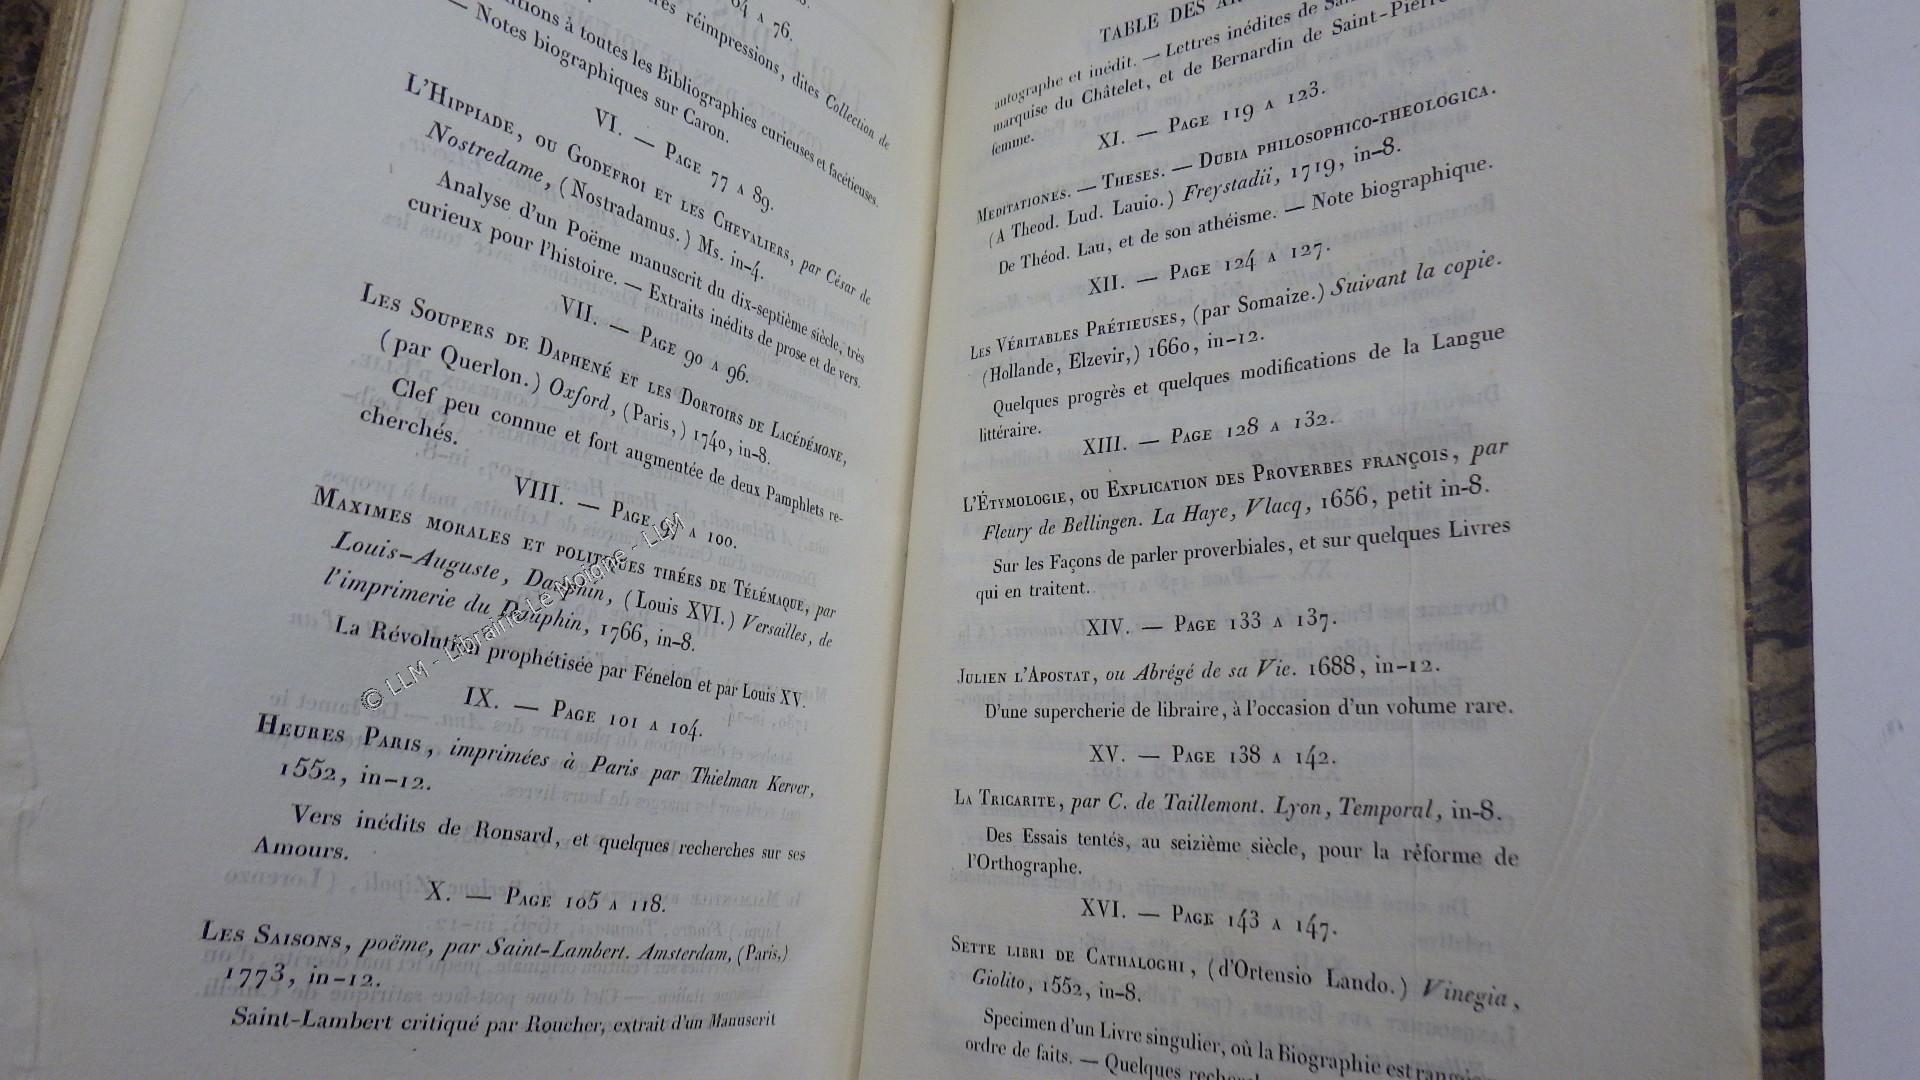 64 A 76.
réimpressions, dites Collection de
à toutes les Bibliographies curieuses et facétieuses.
— Notes biographiques sur Caron.
VI. — PAGE 77 A 89.
L'HIPPIADE, OU GODEFROI ET LES CHEVALIERS, par César de
Nostredame, (Nostradamus.) Ms. in-4.
Analyse d'un Poëme manuscrit du dix-septième siècle, très
curieux pour l'histoire. — Extraits inédits de prose et de vers.
VII. — PAGE 90 A 96.
LES SOUPERS DE DAPHENÉ ET LES DORTOIRS DE LACÉDÉMONE,
(par Querlon.) Oxford, (Paris,) 1740, in-8.
Clef peu connue et fort augmentée de deux Pamphlets re-
cherchés.
VIII. — PAGE 97 A 100.
MAXIMES MORALES ET POLITIQUES TIRÉES DE TÉLÉMAQUE, par
Louis-Auguste, Dauphin, (Louis XVI.) Versailles, de
l'imprimerie du Dauphin, 1766, in-8.
La Révolution prophétisée par Fénelon et par Louis XV.
IX. — PAGE 101 A 104.
HEURES PARIS, imprimées à Paris par Thielman Kerver,
1552, in-12.
Vers inédits de Ronsard, et quelques recherches sur ses
Amours.
X. — PAGE 105 A 118.
LES SAISONS, poëme, par Saint-Lambert. Amsterdam, (Paris,)
1773, in-12.
Saint-Lambert critiqué par Roucher, extrait d'un Manuscrit
© LLM - Librairie Le Moigne - LLM
TABLE DES
autographe et inédit. — Lettres inédites de
marquise du Châtelet, et de Bernardin de Saint-Pierre
femme.
XI. — PAGE 119 A 123.
MEDITATIONES. — THESES. — DUBIA PHILOSOPHICO-THEOLOGICA.
(A Theod. Lud. Lauio.) Freystadii, 1719, in-8.
De Théod. Lau, et de son athéisme. — Note biographique.
XII. — PAGE 124 A 127.
LES VÉRITABLES PRÉTIEUSES, (par Somaize.) Suivant la copie.
(Hollande, Elzevir,) 1660, in-12.
Quelques progrès et quelques modifications de la Langue
littéraire.
XIII. — PAGE 128 A 132.
L'ÉTYMOLOGIE, OU EXPLICATION DES PROVERBES FRANÇOIS, par
Fleury de Bellingen. La Haye, Vlacq, 1656, petit in-8.
Sur les Façons de parler proverbiales, et sur quelques Livres
qui en traitent.
XIV. — PAGE 133 A 137.
JULIEN L'APOSTAT, ou Abrégé de sa Vie. 1688, in-12.
D'une supercherie de libraire, à l'occasion d'un volume rare.
XV. — PAGE 138 A 142.
LA TRICARITE, par C. de Taillemont. Lyon, Temporal, in-8.
Des Essais tentés, au seizième siècle, pour la réforme de
l'Orthographe.
XVI. — PAGE 143 A 147.
SETTE LIBRI DE CATHALOGHI, (d'Ortensio Lando.) Vinegia,
Giolito, 1552, in-8.
Specimen d'un Livre singulier, où la Biographie est
ordre de faits. — Quelques